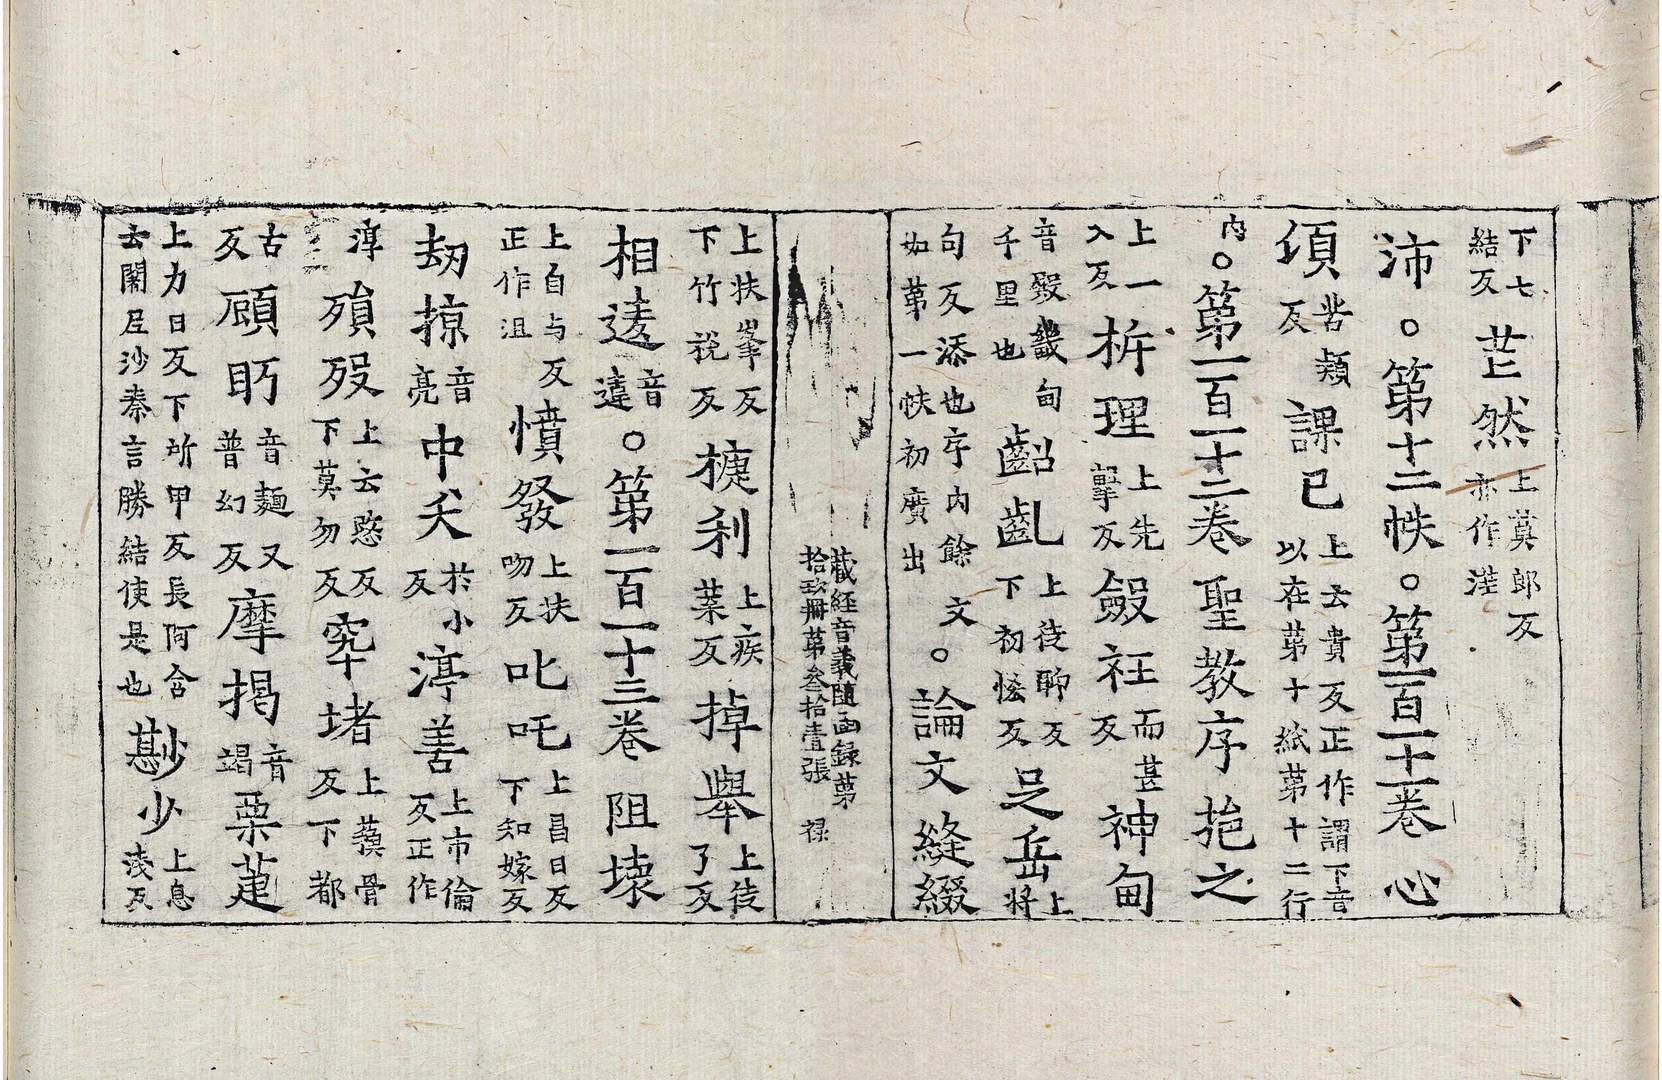 下七結反芷然上莫郎反亦作茫
沛。第十二帙。第一百一十一卷心
傾苦潁反課已上云貴反正作謂下音以在苐十紙第十二行
内。第一百一十二卷聖教序挹之
上一入反枿理上先擊反斂衽上而甚反神甸
音毀畿甸千里也齠亂上徒聊反下初恡反足岳上將
句反添也序内餘文如苐一帙初廣出。論文縫綴
藏經音義隨函録苐拾玖冊苐叁拾壹張 祿
上扶峯反下竹稅反揵利上疾葉反掉舉上徒了反
相逵音違。第一百一十三卷阻壞
上自与反正作沮憤發上扶吻反叱吒上昌日反下知嫁反
刼掠音亮中夭於小反渟善上市倫反正作
淳殞歿上云愍反下莫勿反窣堵上蘓骨反下都
古反頋眄音麵又普幻反摩揭音竭栗蓮
上力日反下所甲反長阿含云闍𡰱沙秦言勝結使是也尠少上息淺反